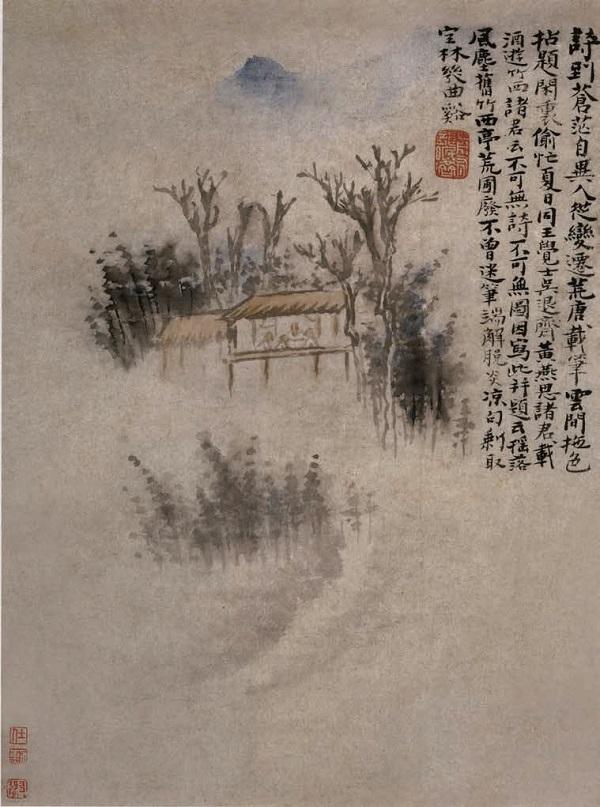 詩到蒼茫自異人愁變遷荒唐載筆雲間拖色
拈題閑裏偷忙夏日同王覺士吳退齋黃燕思諸君載
酒遊竹西諸君云不可無詩不可無圖因寫此并題云搖落
風塵舊竹西亭荒圃廢不曾迷筆端解脫炎涼句剩取
空林幾曲谿